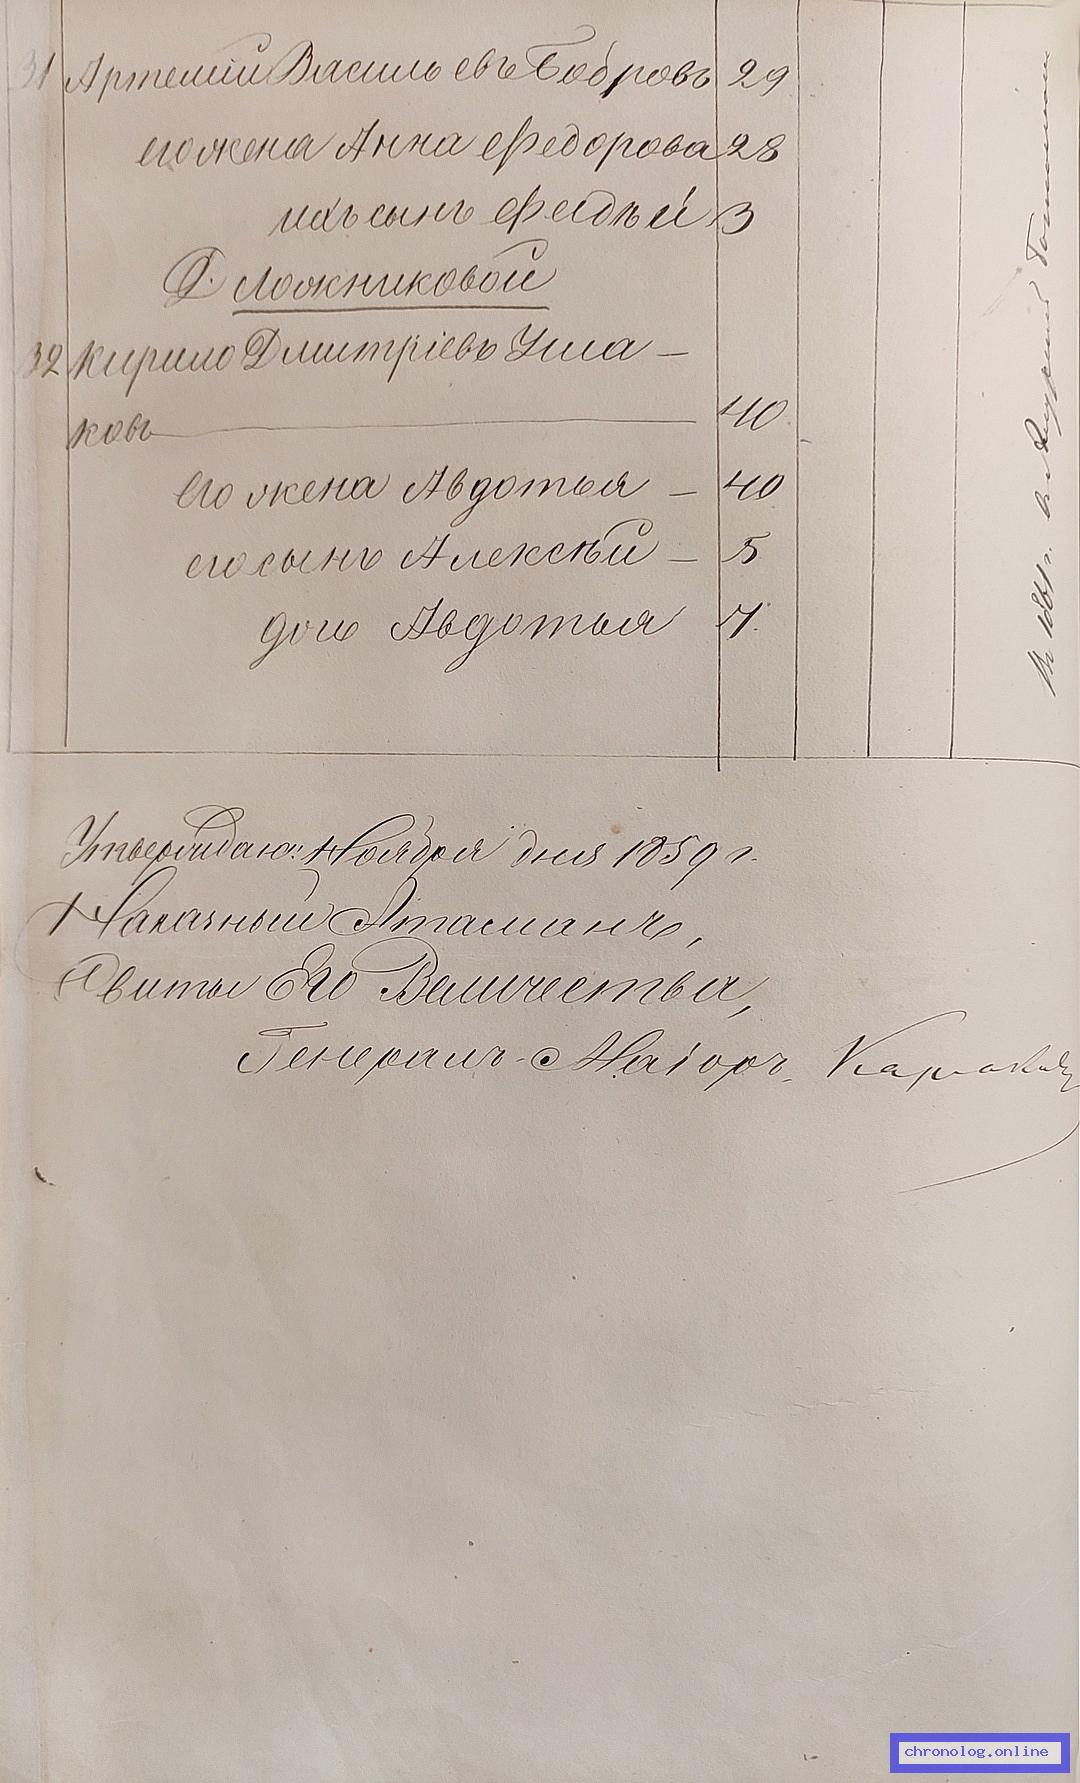 31 Артемій Васильевъ Бобровъ 29
его жена Анна Федорова 28
ихъ сынъ Федѣй 3
Д. Ложниковой
32 Кирило Дмитріевъ Уша –
ковъ 40
его жена Авдотья – 40
его сынъ Алексѣй – 5
дочь Авдотья 7.
Утверждаю: Ноября дня 1859 г.
Наказный Атаманъ,
Свиты Его Величества,
Генералъ-Маіоръ
1861 г.
chronolog.online